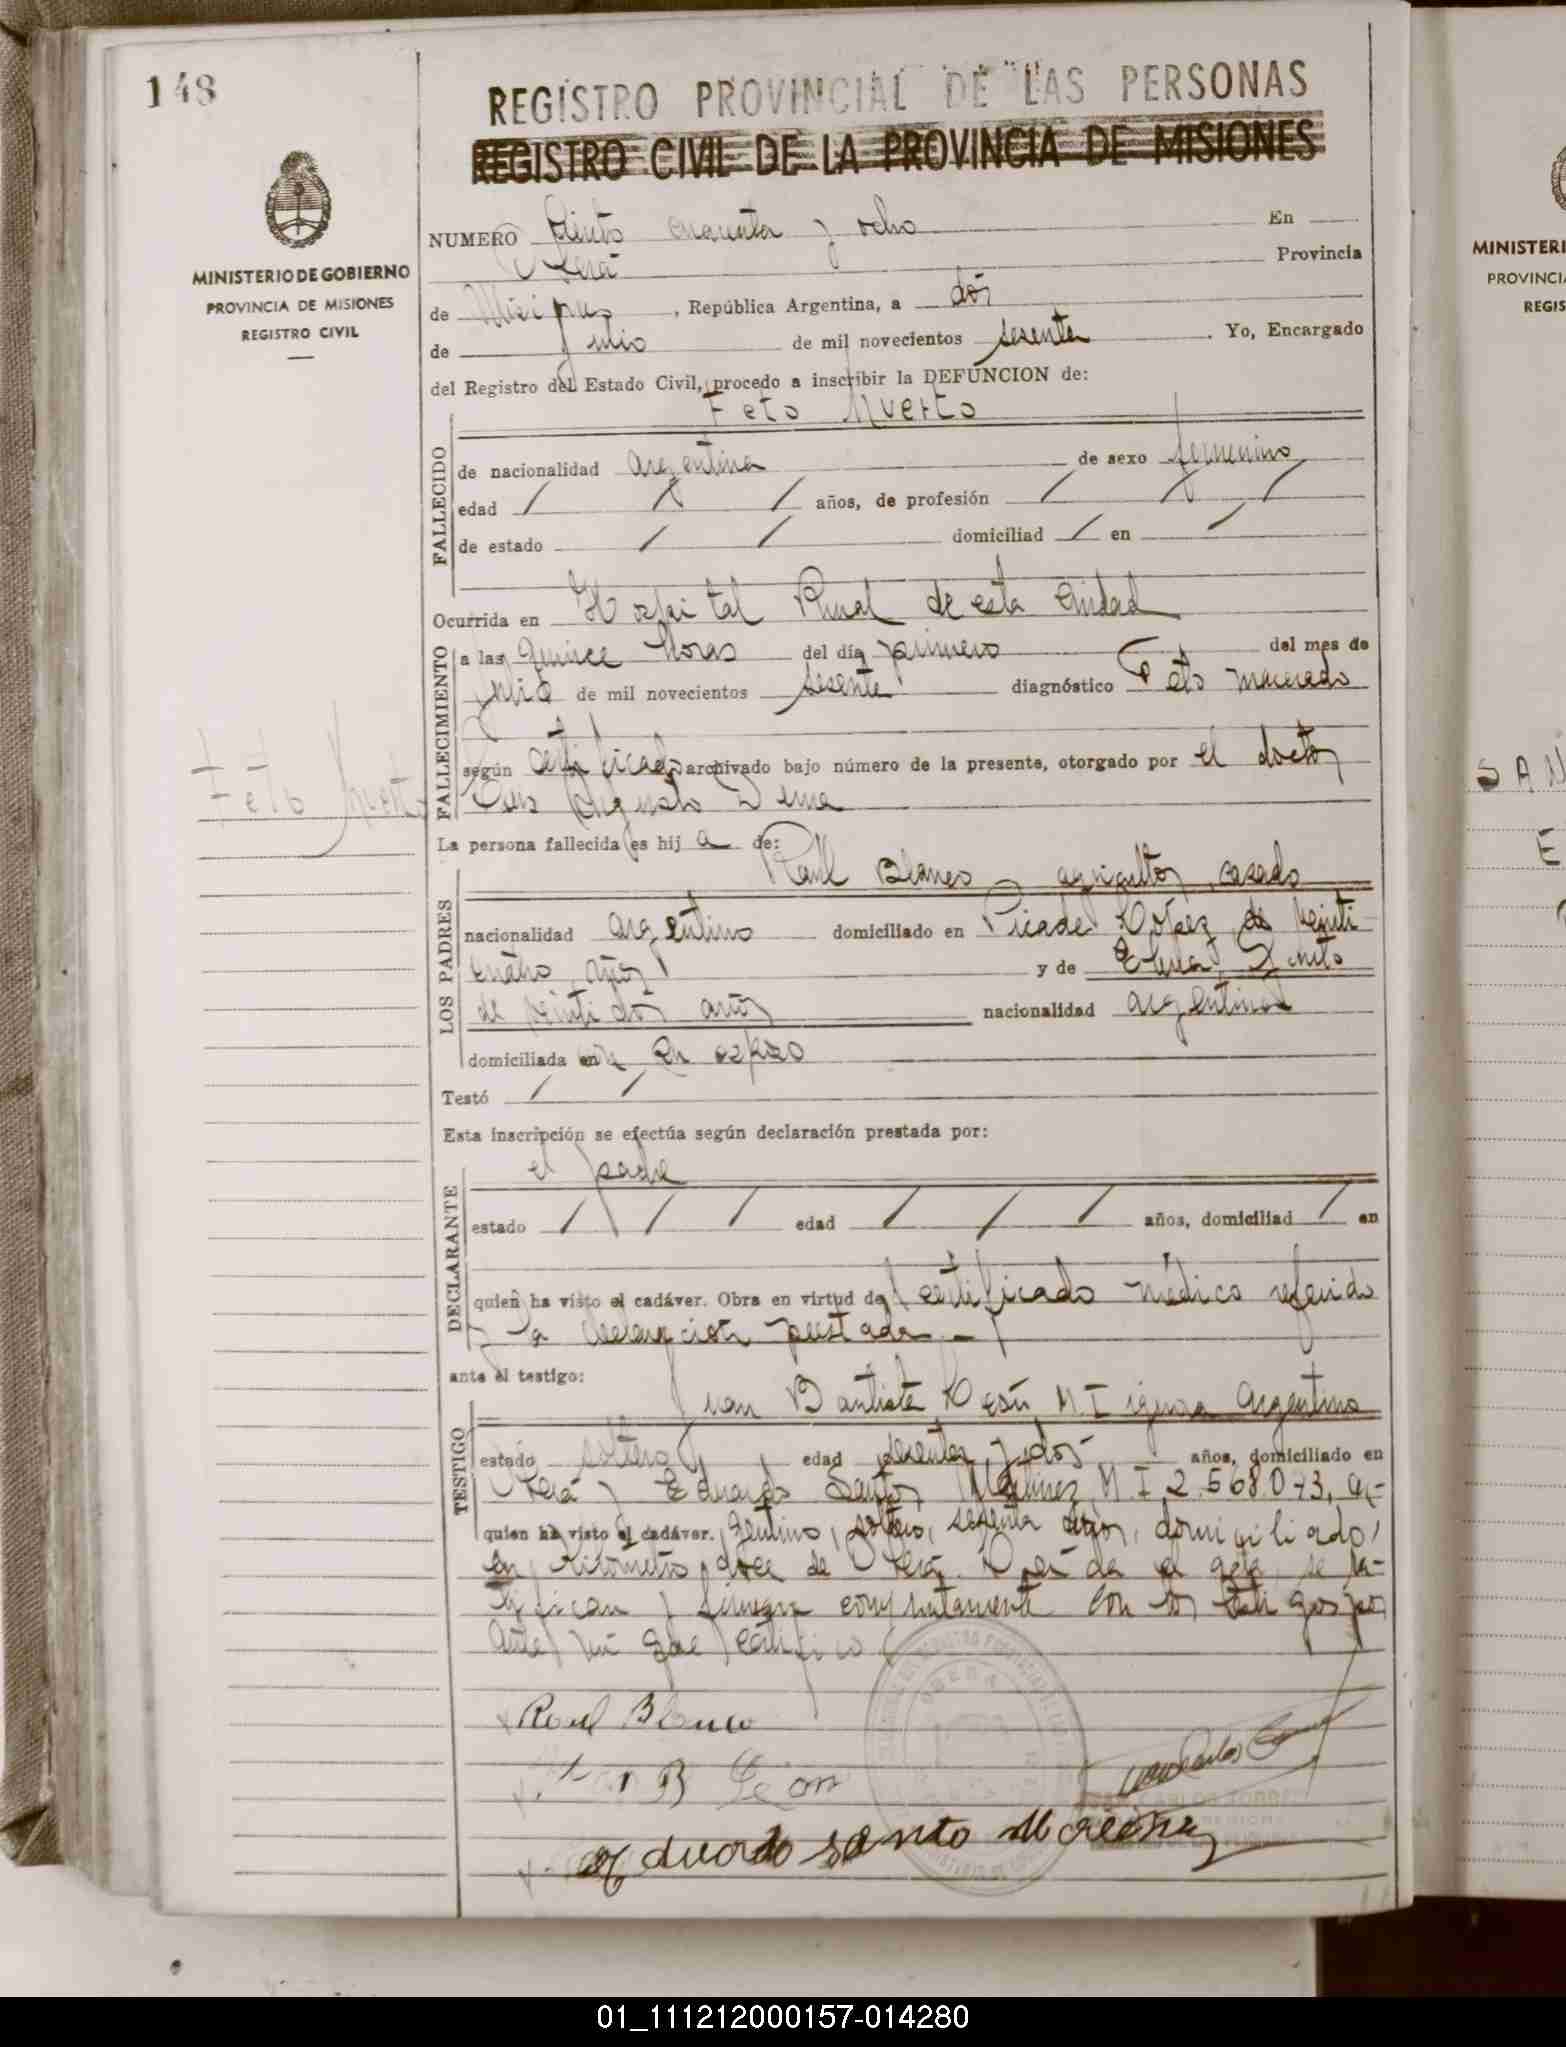 148
REGISTRO PROVINCIAL DE LAS PERSONAS
REGISTRO CIVIL DE LA PROVINCIA DE MISIONES
MINISTERIO DE GOBIERNO
PROVINCIA DE MISIONES
REGISTRO CIVIL
NUMERO Ciento cuarenta y ocho En
Oberá Provincia
de Misiones, República Argentina, a dos
de julio de mil novecientos sesenta. Yo, Encargado
del Registro del Estado Civil, procedo a inscribir la DEFUNCION de:
Feto Muerto
FALLECIDO
de nacionalidad argentina de sexo femenino
edad / / / años, de profesión / / /
de estado / / domiciliad / en /
Ocurrida en Hospital Rural de esta Ciudad
FALLECIMIENTO
a las quince horas del día primero del mes de
julio de mil novecientos sesenta diagnóstico Feto macerado
según certificado archivado bajo número de la presente, otorgado por el doctor
Luis Augusto
Feto Muerto
La persona fallecida es hij a de:
LOS PADRES
Raúl Blanco, agricultor, casado
nacionalidad argentino domiciliado en Picada López de veinti
cuatro años y de Elena
de veintidós años nacionalidad argentina
domiciliada en su esposo
Testó / /
Esta inscripción se efectúa según declaración prestada por:
el padre
DECLARANTE
estado / / / edad / / / años, domiciliad / en
quien ha visto el cadáver. Obra en virtud de certificado médico referido
y a declaración prestada.-
ante el testigo:
Juan Bautista León M I ignora Argentino
TESTIGO
estado soltero edad sesenta y dos años, domiciliado en
Oberá y Eduardo Santos Martinez M I 2.568.073, ar-
quien ha visto el cadáver. gentino, soltero, sesenta años, domiciliado
en kilómetro doce de Oberá. Leída el acta, se ra-
tifican y firman conjuntamente con los testigos por
ante mí que certifico
Raul Blanco
B León
Eduardo santo
OBERA
01_111212000157-014280
MINISTERI
PROVINCIA
REGIS
SAN
E